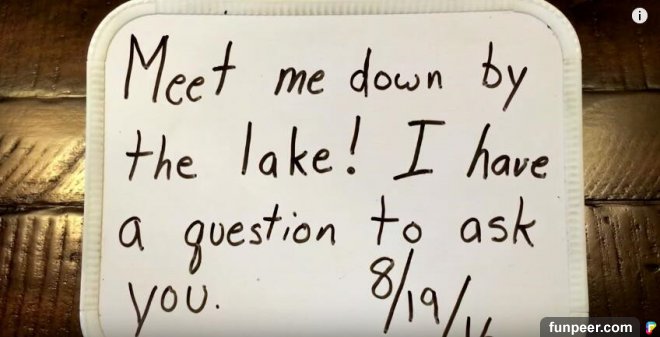 Meet me down by
the lake! I have
a question to ask
you. 8/19/16
funpeer.com